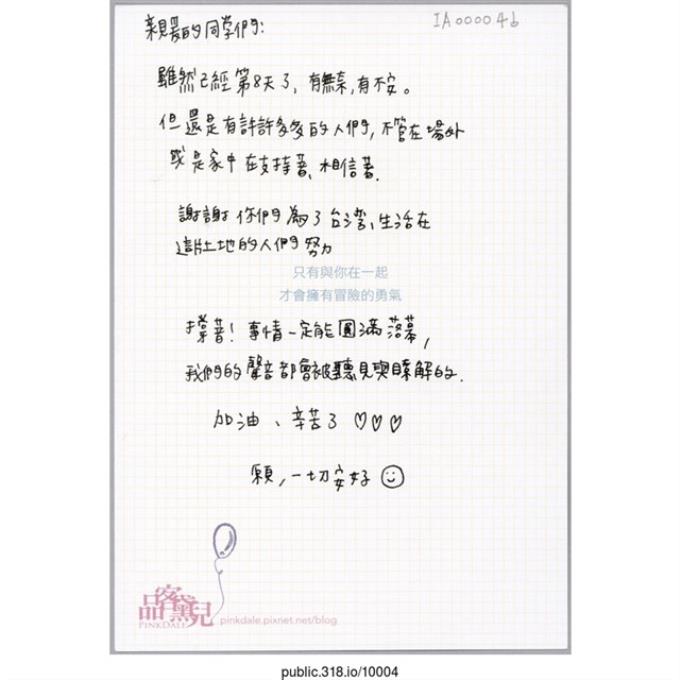 IA000046
親愛的同學們:
雖然已經第8天了,有無奈,有不安。
但還是有許許多多的人們,不管在場外
或是家中在支持著、相信著.
謝謝你們為了台灣、生活在
這片土地的人們努力
只有與你在一起
才會擁有冒險的勇氣
撐著!事情一定能圓滿落幕,
我們的聲音都會被聽見與瞭解的.
加油、辛苦了♡♡♡
願,一切安好☺
品客黛兒
PINKDALE
pinkdale.pixnet.net/blog
public.318.io/10004